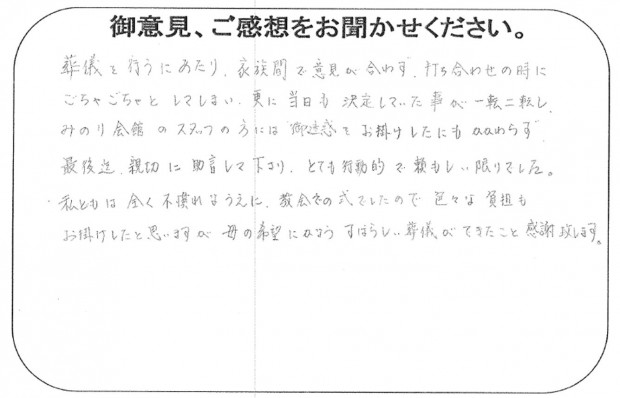 御意見、ご感想をお聞かせください。
葬儀を行うにあたり、家族間で意見が合わず、打ち合わせの時に
ごちゃごちゃとしてしまい、更に当日も決定していた事が一転二転し、
みのり会館のスタッフの方には御迷惑をお掛けしたにもかかわらず
最後迄、親切に助言して下さり、とても行動的で頼もしい限りでした。
私どもは全く不慣れなうえに、教会での式でしたので色々な負担も
お掛けしたと思いますが母の希望にかなうすばらしい葬儀ができたこと感謝致します。